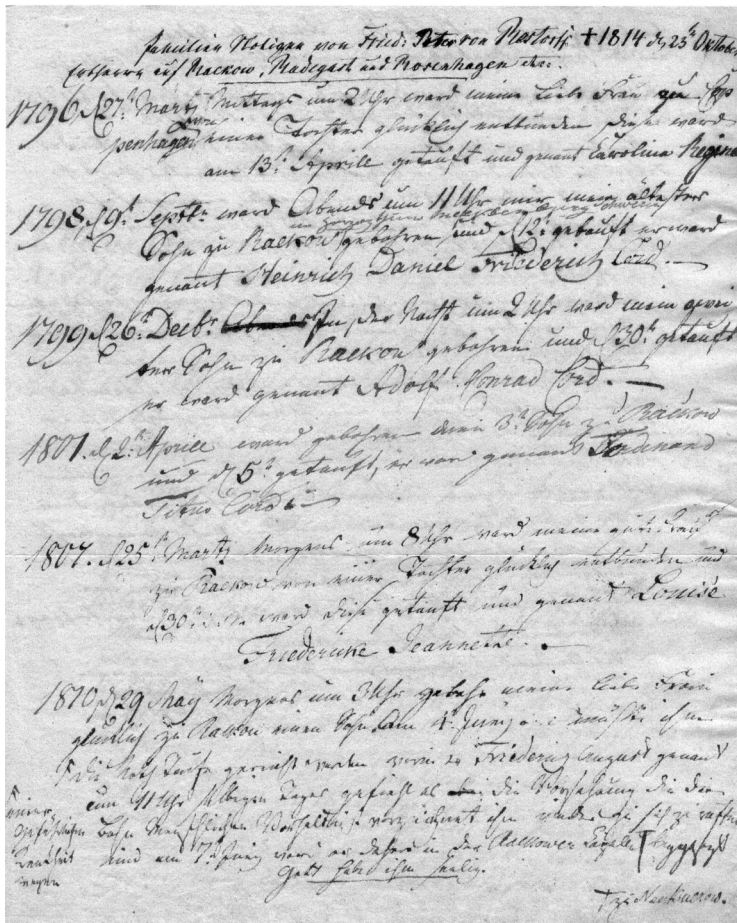 Familien Notizen von Fried: Peter von Restorff † 1814 d 25t Oktober
Erbherrn auf Rackow, Radegast und Rosenhagen etc:
1796 d 27t Martz Mittags um 2 Uhr ward meine liebe Frau zu Cop
penhagen von einer Tochter glücklich entbunden, diese ward
am 13t Aprill getauft und genant Carolina Regina
1798, d 9t Septbr ward Abends um 11 Uhr mir mein ältester
im Herzogthum Mecklenburg Schwerin
Sohn zu Rackow gebohren und d 12t getauft er ward
genant Heinrich Daniel Friederich Cord.
1799 d 26t Decbr In der Nacht um 2 Uhr ward mein zwei
ter Sohn zu Rackow gebohren und d 30t getauft
er ward genant Adolf Conrad Cord.
1801. d 2t Aprill ward gebohren mein 3t Sohn zu Rackow
und d 5t getauft, er ward genant Ferdinand
Cord
1807. d 25t Martz Morgens um 8 Uhr ward meine gute Frau
zu Rackow von einer Tochter glücklich entbunden und
d 30t ward diese getauft und genant Louise
Friedericke Jeannette.
1810 d 29 May Morgens um 3 Uhr gebahr meine liebe Frau
glücklich zu Rackow einen Sohn, am 4t Juny mußte ihm
die Noth Taufe gereicht werden worin er Friederich August genant
um 11 Uhr selbigen Tages gefiehl es die Vorsehung die die
Bahn Menschlichen ihm wieder zu sich zu
und am 7t Juny ward er daher in der Rackower Capelle beygesetzt
Gott habe ihn seelig.
einer
gefährlichen
Krankheit
wegen
† zu Neubuckow.